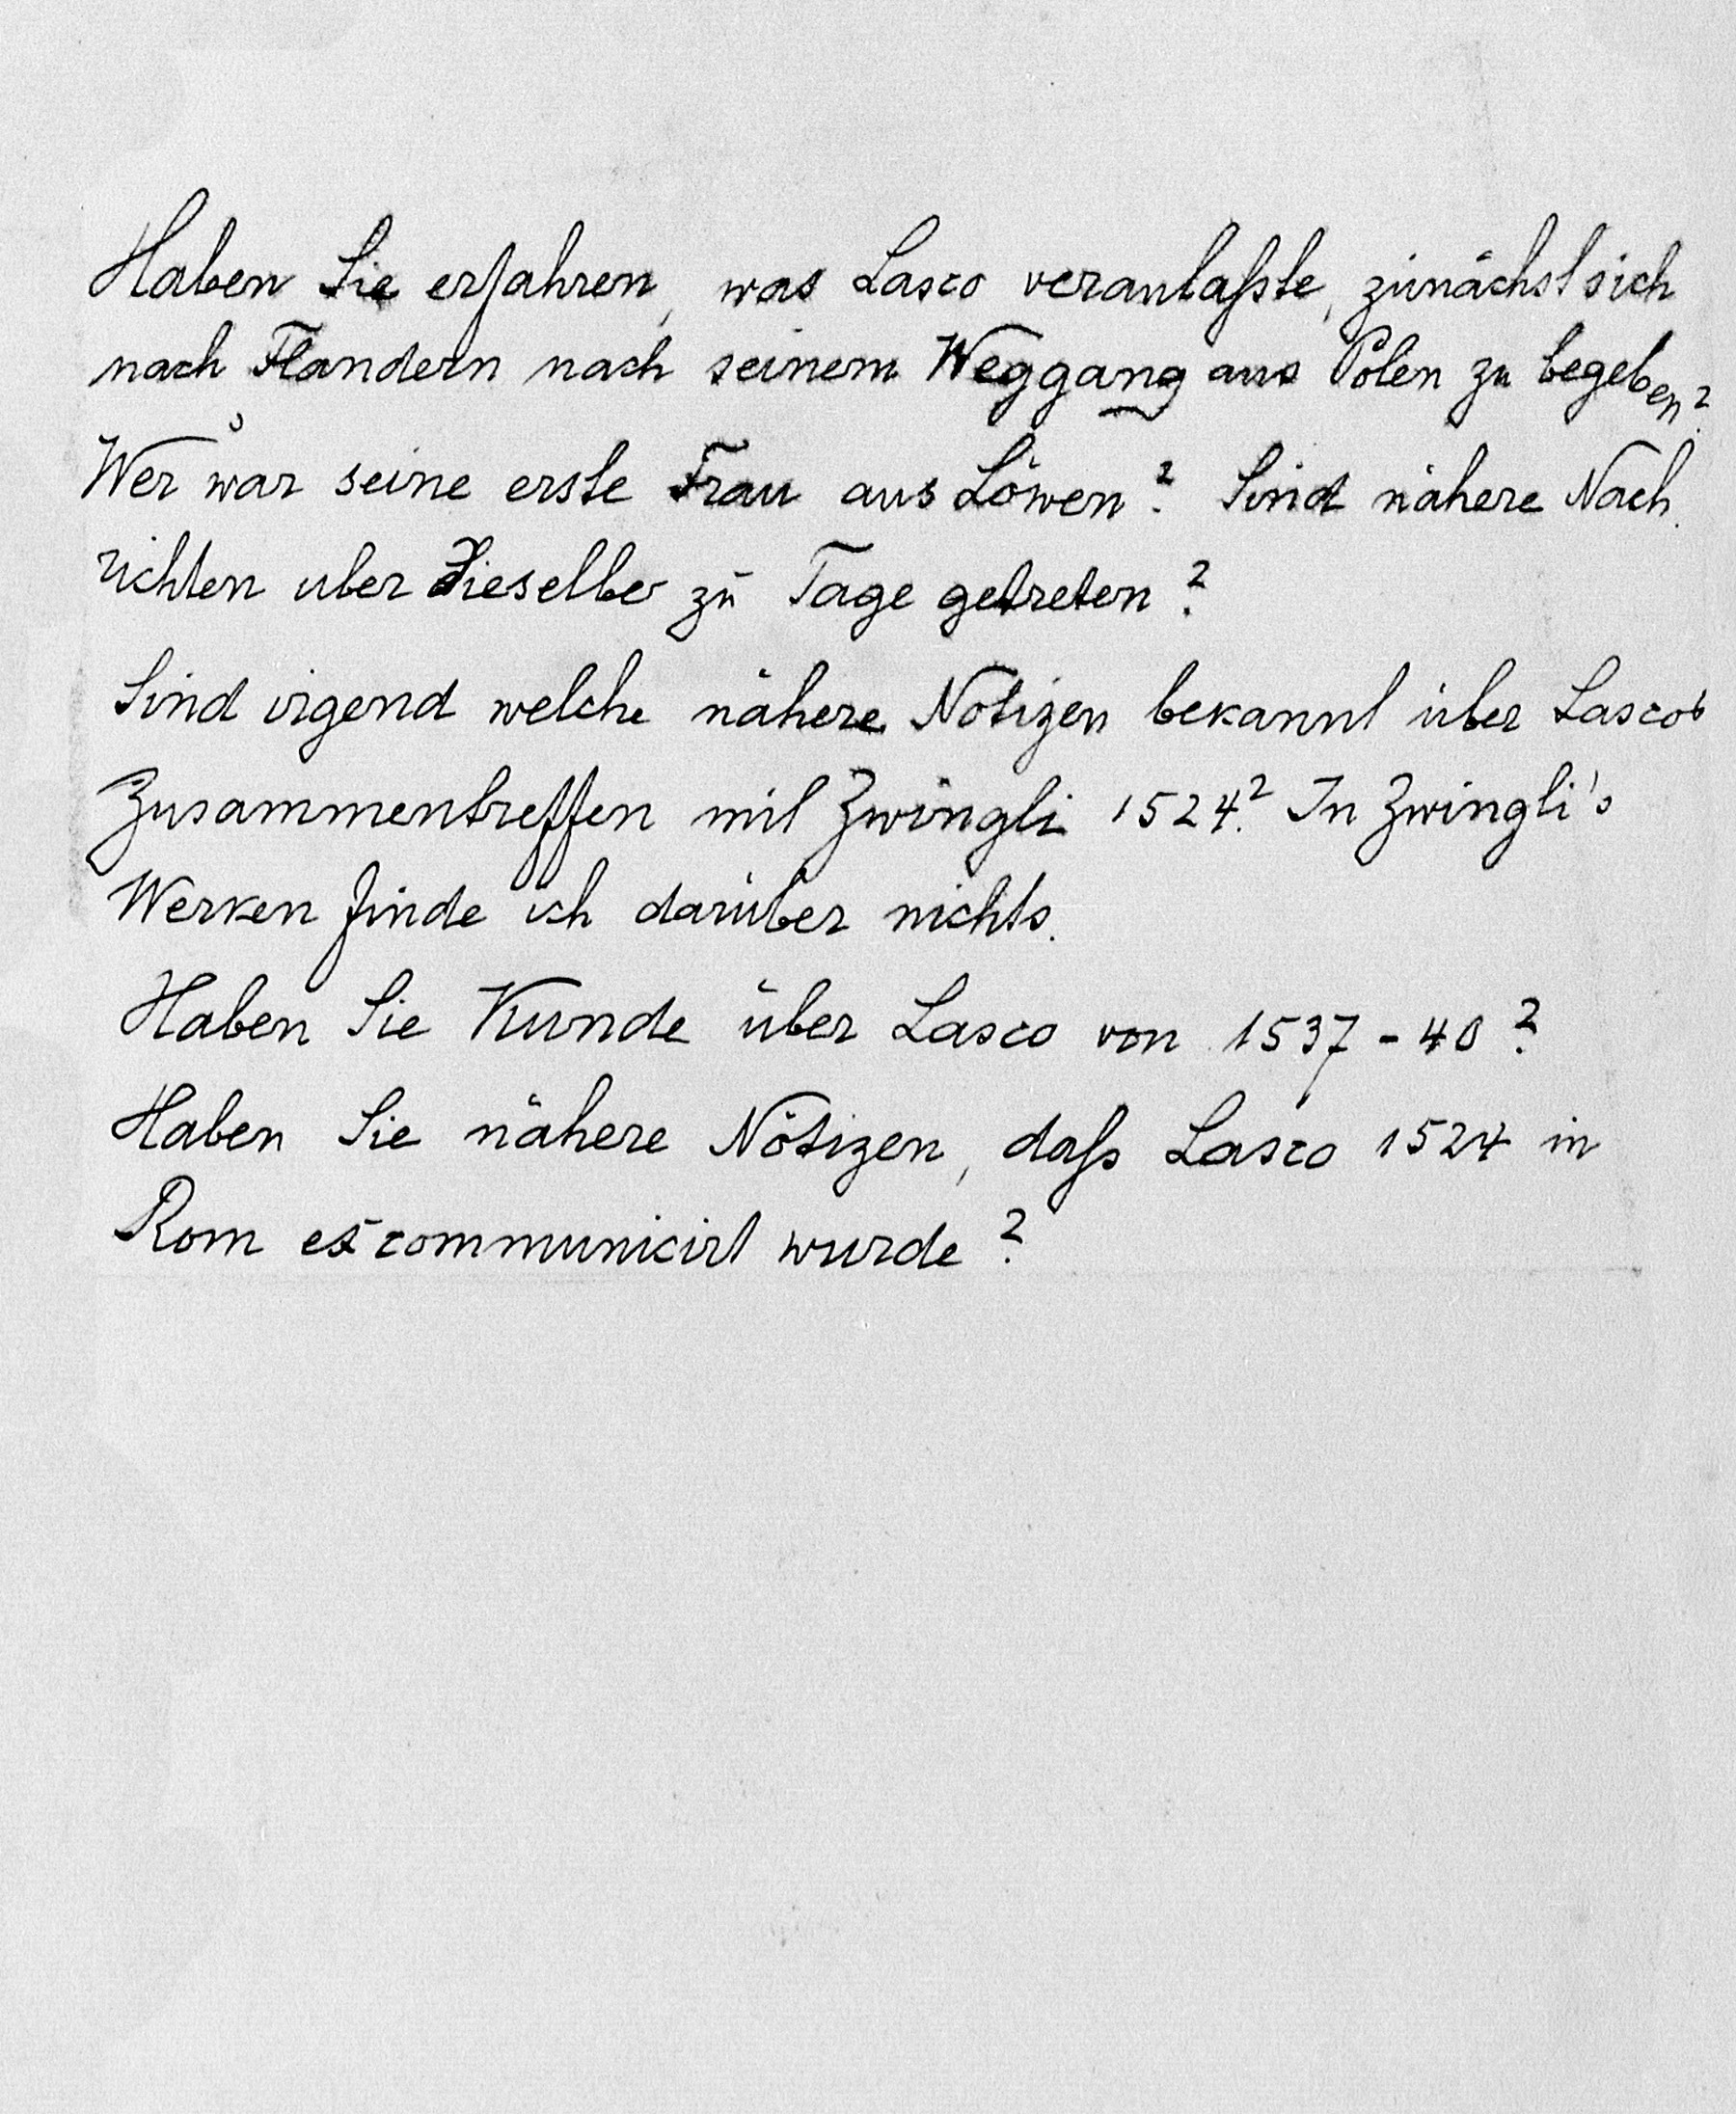 Haben Sie erfahren, was Lasco veranlaßte, zunächst sich
nach Flandern nach seinem Weggang aus Polen zu begeben?
Wer war seine erste Frau aus Löwen? Sind nähere Nach
richten über dieselbe zu Tage getreten?
Sind irgend welche nähere Notizen bekannt über Lascos
Zusammentreffen mit Zwingli 1524? In Zwingli's
Werken finde ich darüber nichts.
Haben Sie Kunde über Lasco von 1537-40?
Haben Sie nähere Notizen, daß Lasco 1524 in
Rom excommunicirt wurde?